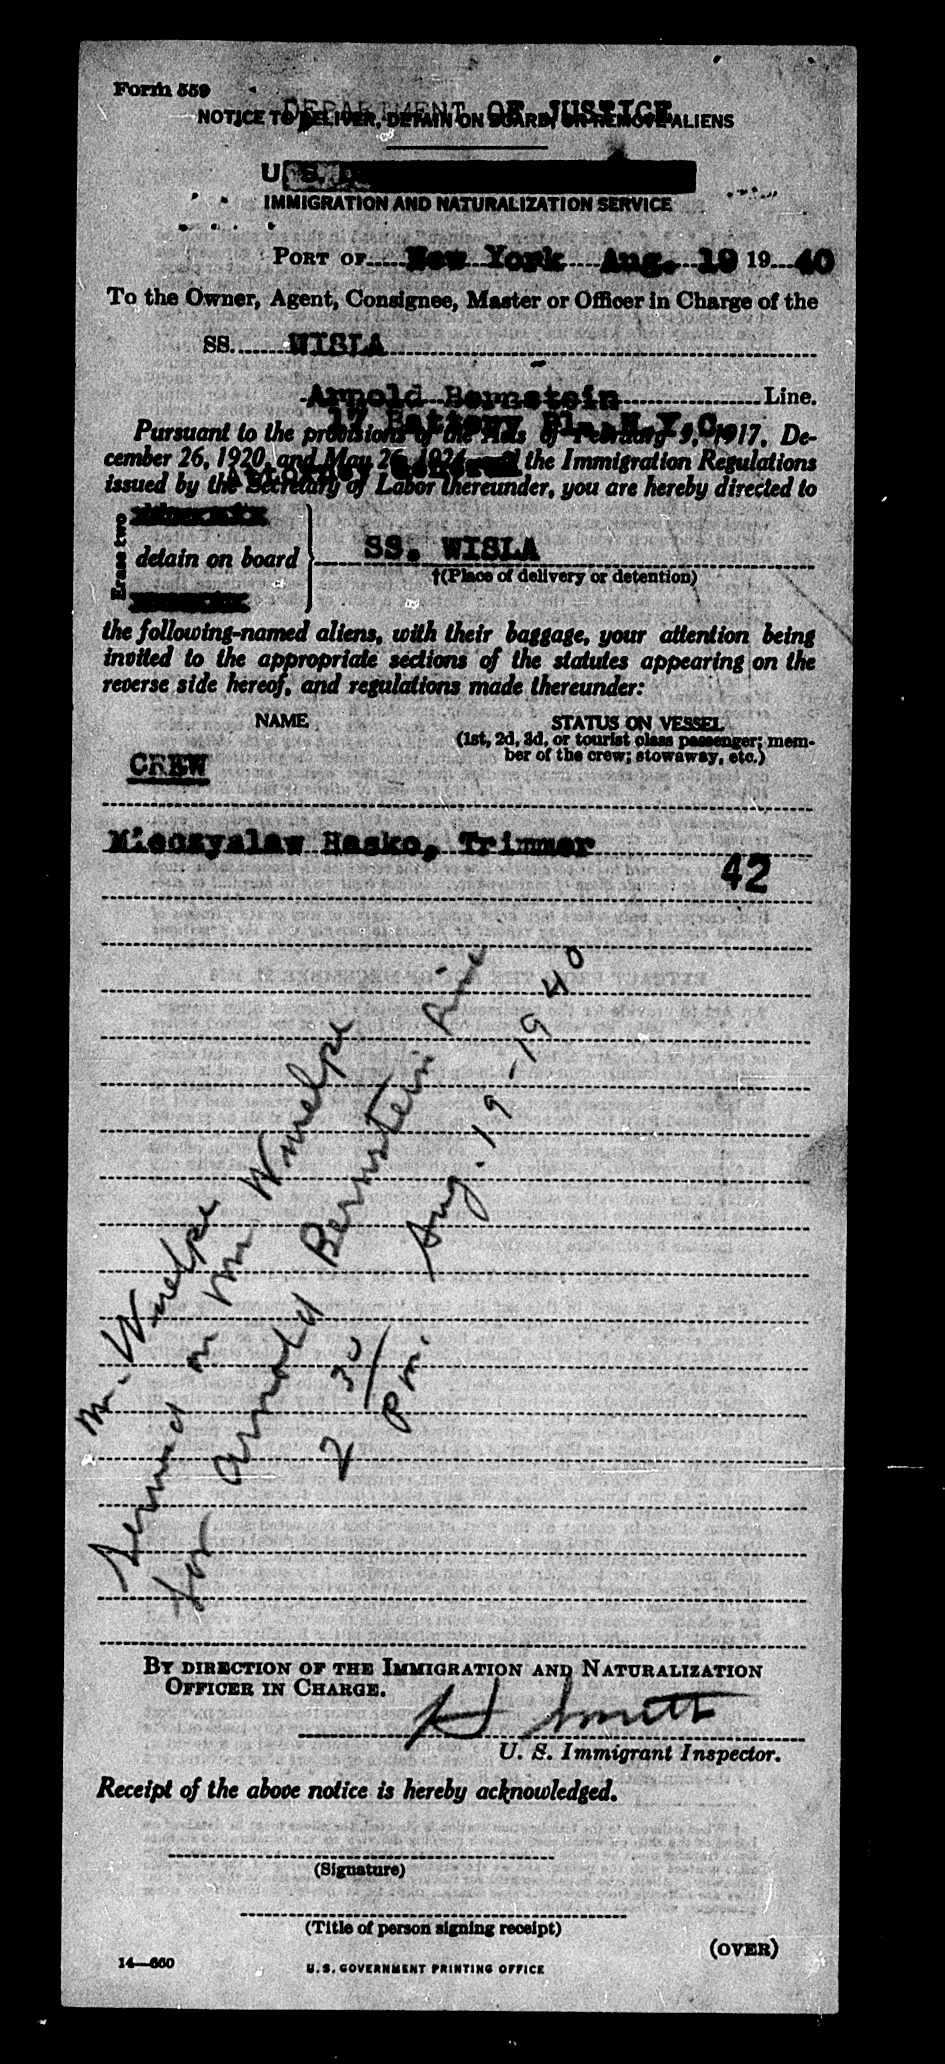 Form 559
DEPARTMENT OF JUSTICE
NOTICE TO DELIVER, DETAIN ON BOARD, OR REMOVE ALIENS
U. S. D
IMMIGRATION AND NATURALIZATION SERVICE
PORT OF New York Aug. 19 19 40
To the Owner, Agent, Consignee, Master or Officer in Charge of the
SS. WISLA
Arnold Bernstein Line.
17 Battery Pl., N.Y.C.
Pursuant to the provisions of the Acts of February 5, 1917, De-
cember 26, 1920, and May 26, 1924, and the Immigration Regulations
Attorney General
issued by the Secretary of Labor thereunder, you are hereby directed to
Erase two
detain on board
SS. WISLA
†(Place of delivery or detention)
the following-named aliens, with their baggage, your attention being
invited to the appropriate sections of the statutes appearing on the
reverse side hereof, and regulations made thereunder:
NAME
STATUS ON VESSEL
(1st, 2d, 3d, or tourist class passenger; mem-
ber of the crew; stowaway, etc.)
CREW
Mieczyslaw Hasko, Trimmer
42
Mr.
Served on Mr.
for Arnold Bernstein Line
2 30/ P.m. Aug. 19 - 1940
BY DIRECTION OF THE IMMIGRATION AND NATURALIZATION
OFFICER IN CHARGE.
H Smith
U. S. Immigrant Inspector.
Receipt of the above notice is hereby acknowledged.
(Signature)
(Title of person signing receipt)
(OVER)
14—660
U. S. GOVERNMENT PRINTING OFFICE